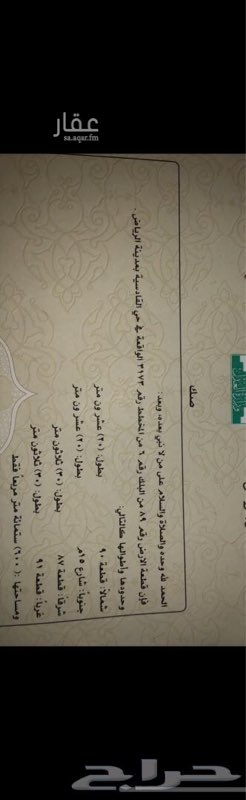 عقار
sa.aqar.fm
وزارة العدل
صك
الحمد لله وحده والصلاة والسلام على من لا نبي بعده، وبعد:
فإن قطعة الارض رقم ٨٩ من البلك رقم ٦ من المخطط رقم ٣١٧٣ الواقعة في حي القادسية بمدينة الرياض .
وحدودها وأطوالها كالتالي:
شمالاً: قطعة ٩٠ بطول: (٢٠) عشر ون متر
جنوباً: شارع ١٥م بطول: (٢٠) عشر ون متر
شرقاً: قطعة ٨٧ بطول: (٣٠) ثلاثون متر
غرباً: قطعة ٩١ بطول: (٣٠) ثلاثون متر
ومساحتها :( ٦٠٠ ) ستمائة متر مربعاً فقط
حراج